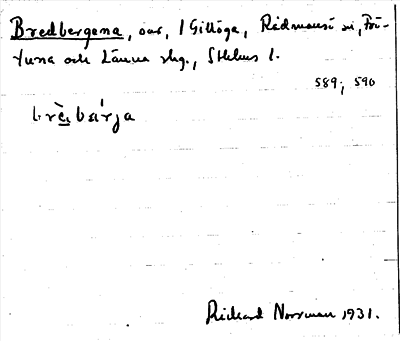 Bredbergena, öar, i Gillöga, Rådmansö sn, Frö-
tuna och Länna skg., Sthlms l.
589; 590
Rickard Norrman 1931.